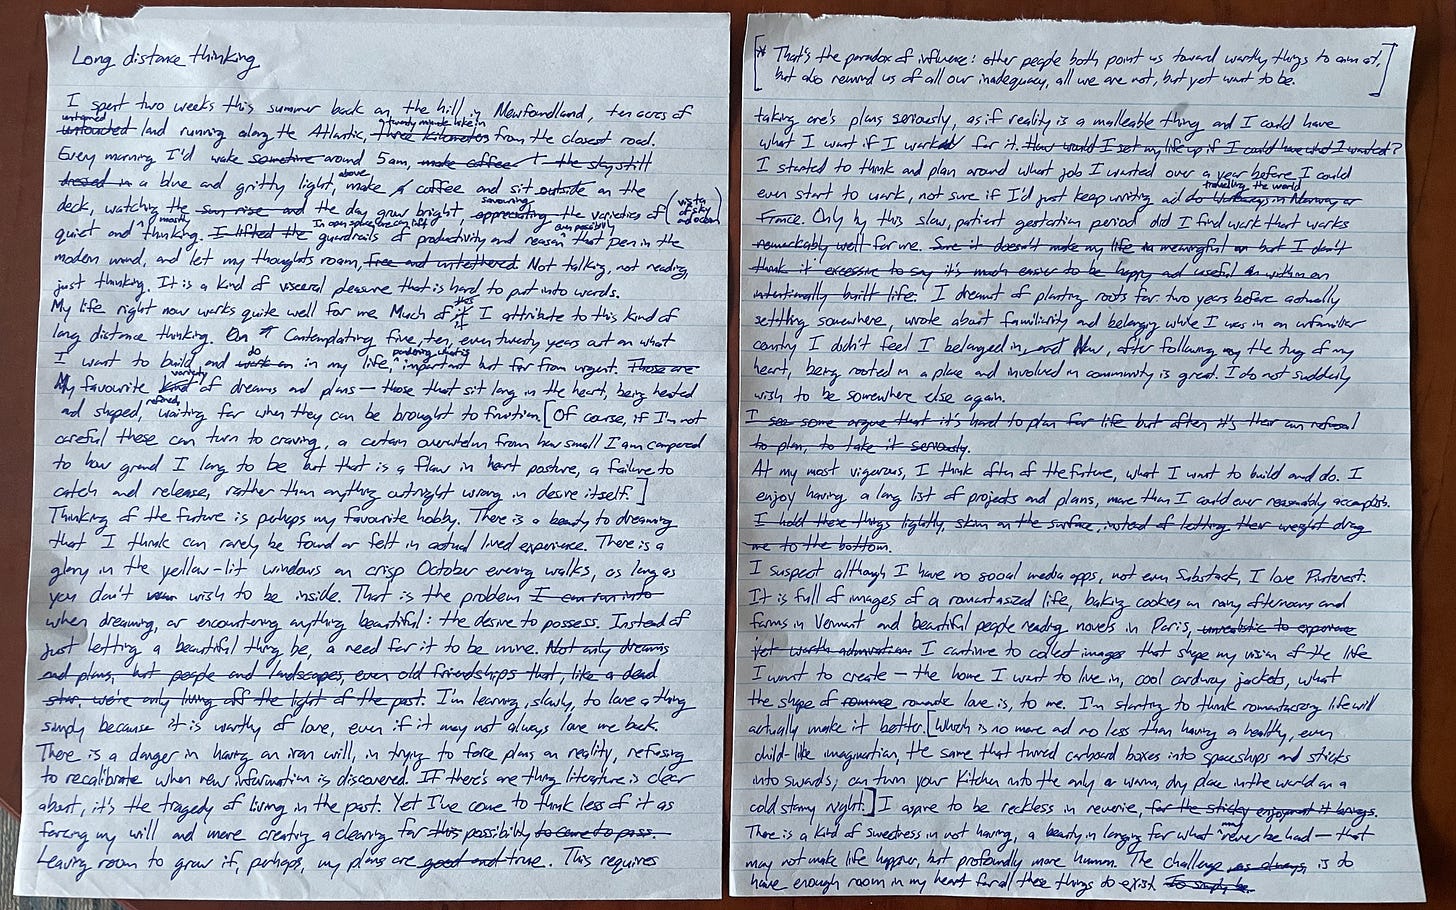 Long distance thinking
I spent two weeks this summer back on the hill in Newfoundland, ten acres of
untamed
untouched land running along the Atlantic, a twenty minute hike in three kilometres from the closest road.
Every morning I'd wake sometime around 5am, make coffee the sky still
dressed in a blue and gritty light, make coffee and sit outside above on the
deck, watching the sun rise and the day grow bright appreciating savouring the varieties of (vista of sky and ocean)
quiet and mostly thinking. I lifted the In open space we can lift guardrails of productivity and reason that pen in the
modern mind, and let my thoughts roam, free and untethered. Not talking, not reading,
just thinking. It is a kind of visceral pleasure that is hard to put into words.
My life right now works quite well for me. Much of it this I attribute to this kind of
long distance thinking. On Contemplating five, ten, even twenty years out on what
I want to build and work on do in my life, pondering what is important but far from urgent. Those are
My favourite kind variety of dreams and plans — those that sit long in the heart, being heated
and shaped, refined, waiting for when they can be brought to fruition. [Of course, if I'm not
careful these can turn to craving, a certain overwhelm from how small I am compared
to how grand I long to be but that is a flaw in heart posture, a failure to
catch and release, rather than anything outright wrong in desire itself.]
Thinking of the future is perhaps my favourite hobby. There is a beauty to dreaming
that I think can rarely be found or felt in actual lived experience. There is a
glory in the yellow-lit windows on crisp October evening walks, as long as
you don't wish to be inside. That is the problem I can run into
when dreaming, or encountering anything beautiful: the desire to possess. Instead of
just letting a beautiful thing be, a need for it to be mine. Not only dreams
and plans, but people and landscapes, even old friendships that, like a dead
star, we're only living off the light of the past. I'm learning, slowly, to love a thing
simply because it is worthy of love, even if it may not always love me back.
There is a danger in having an iron will, in trying to force plans on reality, refusing
to recalibrate when new information is discovered. If there's one thing literature is clear
about, it's the tragedy of living in the past. Yet I've come to think less of it as
forcing my will and more creating a clearing for this possibility to come to pass.
Leaving room to grow if, perhaps, my plans are good and true. This requires
[* That's the paradox of influence: other people both point us toward worthy things to aim at,
but also remind us of all our inadequacy, all we are not, but yet want to be.]
taking one's plans seriously, as if reality is a malleable thing and I could have
what I want if I worked for it. How would I set my life up if I could have what I wanted?
I started to think and plan around what job I wanted over a year before I could
even start to work, not sure if I'd just keep writing and do Workaways in Norway or travelling the world
France. Only by this slow, patient gestation period did I find work that works
remarkably well for me. Sure it doesn't make my life meaningful but I don't
think it excessive to say it's much easier to be happy and useful within an
intentionally built life. I dreamt of planting roots for two years before actually
settling somewhere, wrote about familiarity and belonging while I was in an unfamiliar
country I didn't feel I belonged in, and Now, after following the tug of my
heart, being rooted in a place and involved in community is great. I do not suddenly
wish to be somewhere else again.
I see some argue that it's hard to plan for life but often it's their own refusal
to plan, to take it seriously.
At my most vigorous, I think often of the future, what I want to build and do. I
enjoy having a long list of projects and plans, more than I could ever reasonably accomplish.
I hold these things lightly, skim on the surface, instead of letting their weight drag
me to the bottom.
I suspect although I have no social media apps, not even Substack, I love Pinterest.
It is full of images of a romanticized life, baking cookies on rainy afternoons and
farms in Vermont and beautiful people reading novels in Paris, unrealistic to experience
yet worth admiration. I continue to collect images that shape my vision of the life
I want to create — the home I want to live in, cool corduroy jackets, what
the shape of romance romantic love is, to me. I'm starting to think romanticizing life will
actually make it better. [Which is no more and no less than having a healthy, even
child-like imagination, the same that turned carboard boxes into spaceships and sticks
into swords; can turn your kitchen into the only warm, dry place in the world on a
cold stormy night.] I aspire to be reckless in reverie, for the sticky enjoyment it brings.
There is a kind of sweetness in not having, a beauty in longing for what may never be had — that
may not make life happier, but profoundly more human. The challenge, as always, is to
have enough room in my heart for all these things to exist. To simply be.